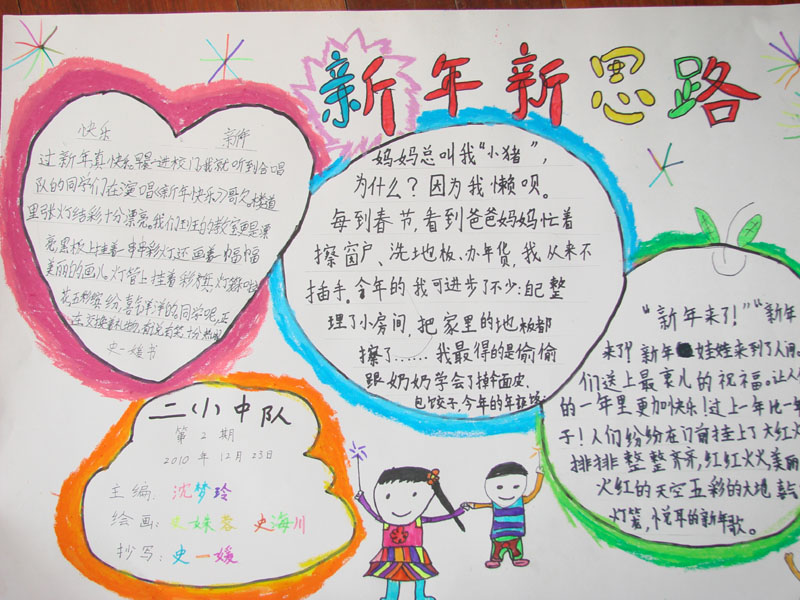 新年新思路
快乐 新年
过新年真快乐,早晨一进校门,我就听到合唱
队的同学们在演唱《新年快乐》哥欠。楼道
里张灯结彩十分漂亮。我们班的教室更是漂
亮黑板上挂着一串串彩灯还画着一幅幅
美丽的画儿灯管上挂着彩旗灯笼
花五彩缤纷喜气洋洋的同学呢正
在交换着礼物
史一媛书
妈妈总叫我“小猪”,
为什么?因为我懒呗。
每到春节,看到爸爸妈妈忙着
擦窗户、洗地板、办年货,我从来不
插手。今年的我可进步了不少:自己整
理了小房间,把家里的地板都
擦了……我最得的是偷偷
跟奶奶学会了擀面皮、
包饺子,今年的年夜饭
“新年来了!”“新年
来了!新年娃娃来到了人间。
们送上最衷儿的祝福。让人
的一年里更加快乐!过上一年比一年
子!人们纷纷在门前挂上了大红火
排排整整齐齐,红红火火,美丽
火红的天空五彩的大地
灯笼,悦耳的新年歌。
二小中队
第2期
2010年12月23日
主编:沈梦玲
绘画:史姝蓉 史海川
抄写:史一媛